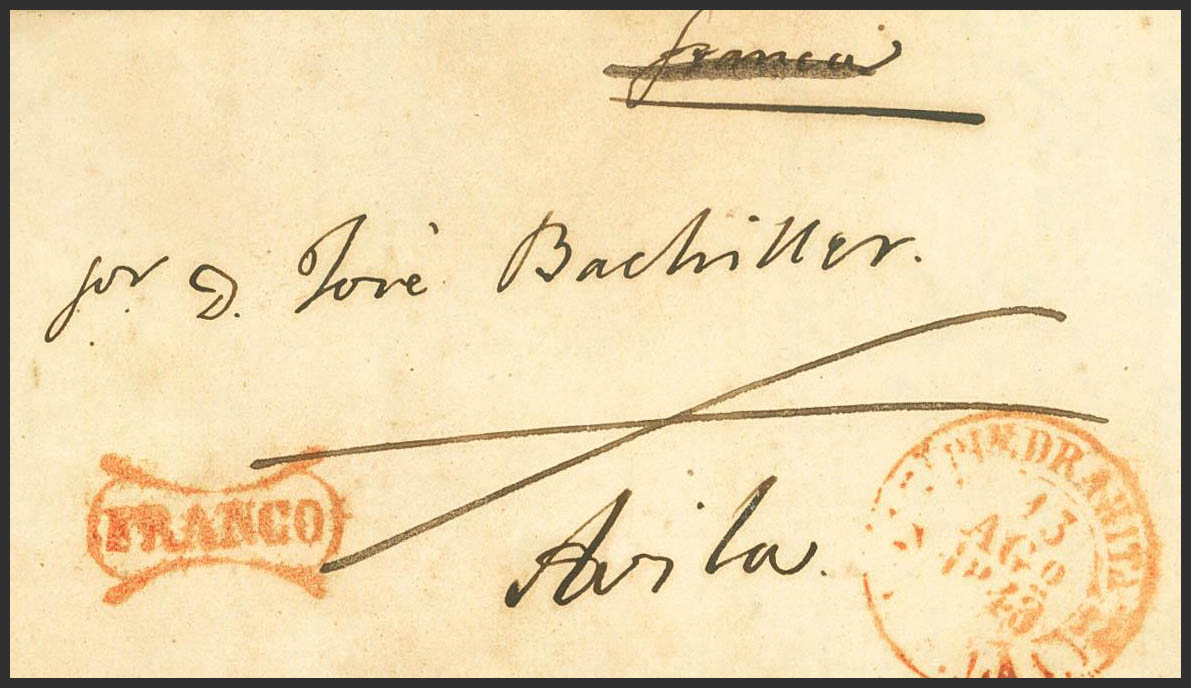 franca
Sor D. José Bachiller.
FRANCO
Avila.
PIEDRAHITA
13
AGO